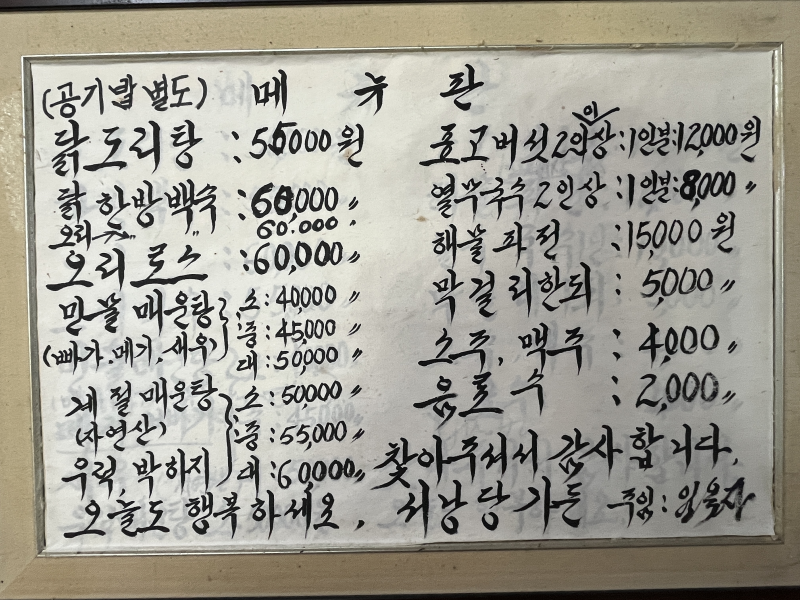 (공기밥별도) 메 뉴 판
닭도리탕 : 55000원
닭 한방백숙 : 60,000〃
오리 〃 〃 60.000〃
오리로스 : 60,000〃
민물매운탕 소 : 40,000〃
(빠가.메기.새우) 중 : 45,000〃
대 : 50,000〃
계절매운탕 소 : 50000〃
(자연산) 중 : 55,000〃
우럭, 박하지 대 : 60,000〃
표고버섯 2인이상 : 1인분:12,000원
열무국수 2인상 : 1인분:8,000〃
해물파전 : 15,000원
막걸리한되 : 5,000〃
소주, 맥주 : 4,000〃
음료수 : 2,000〃
찾아주셔서 감사합니다.
오늘도 행복하세요. 서낭당가든 주임 :